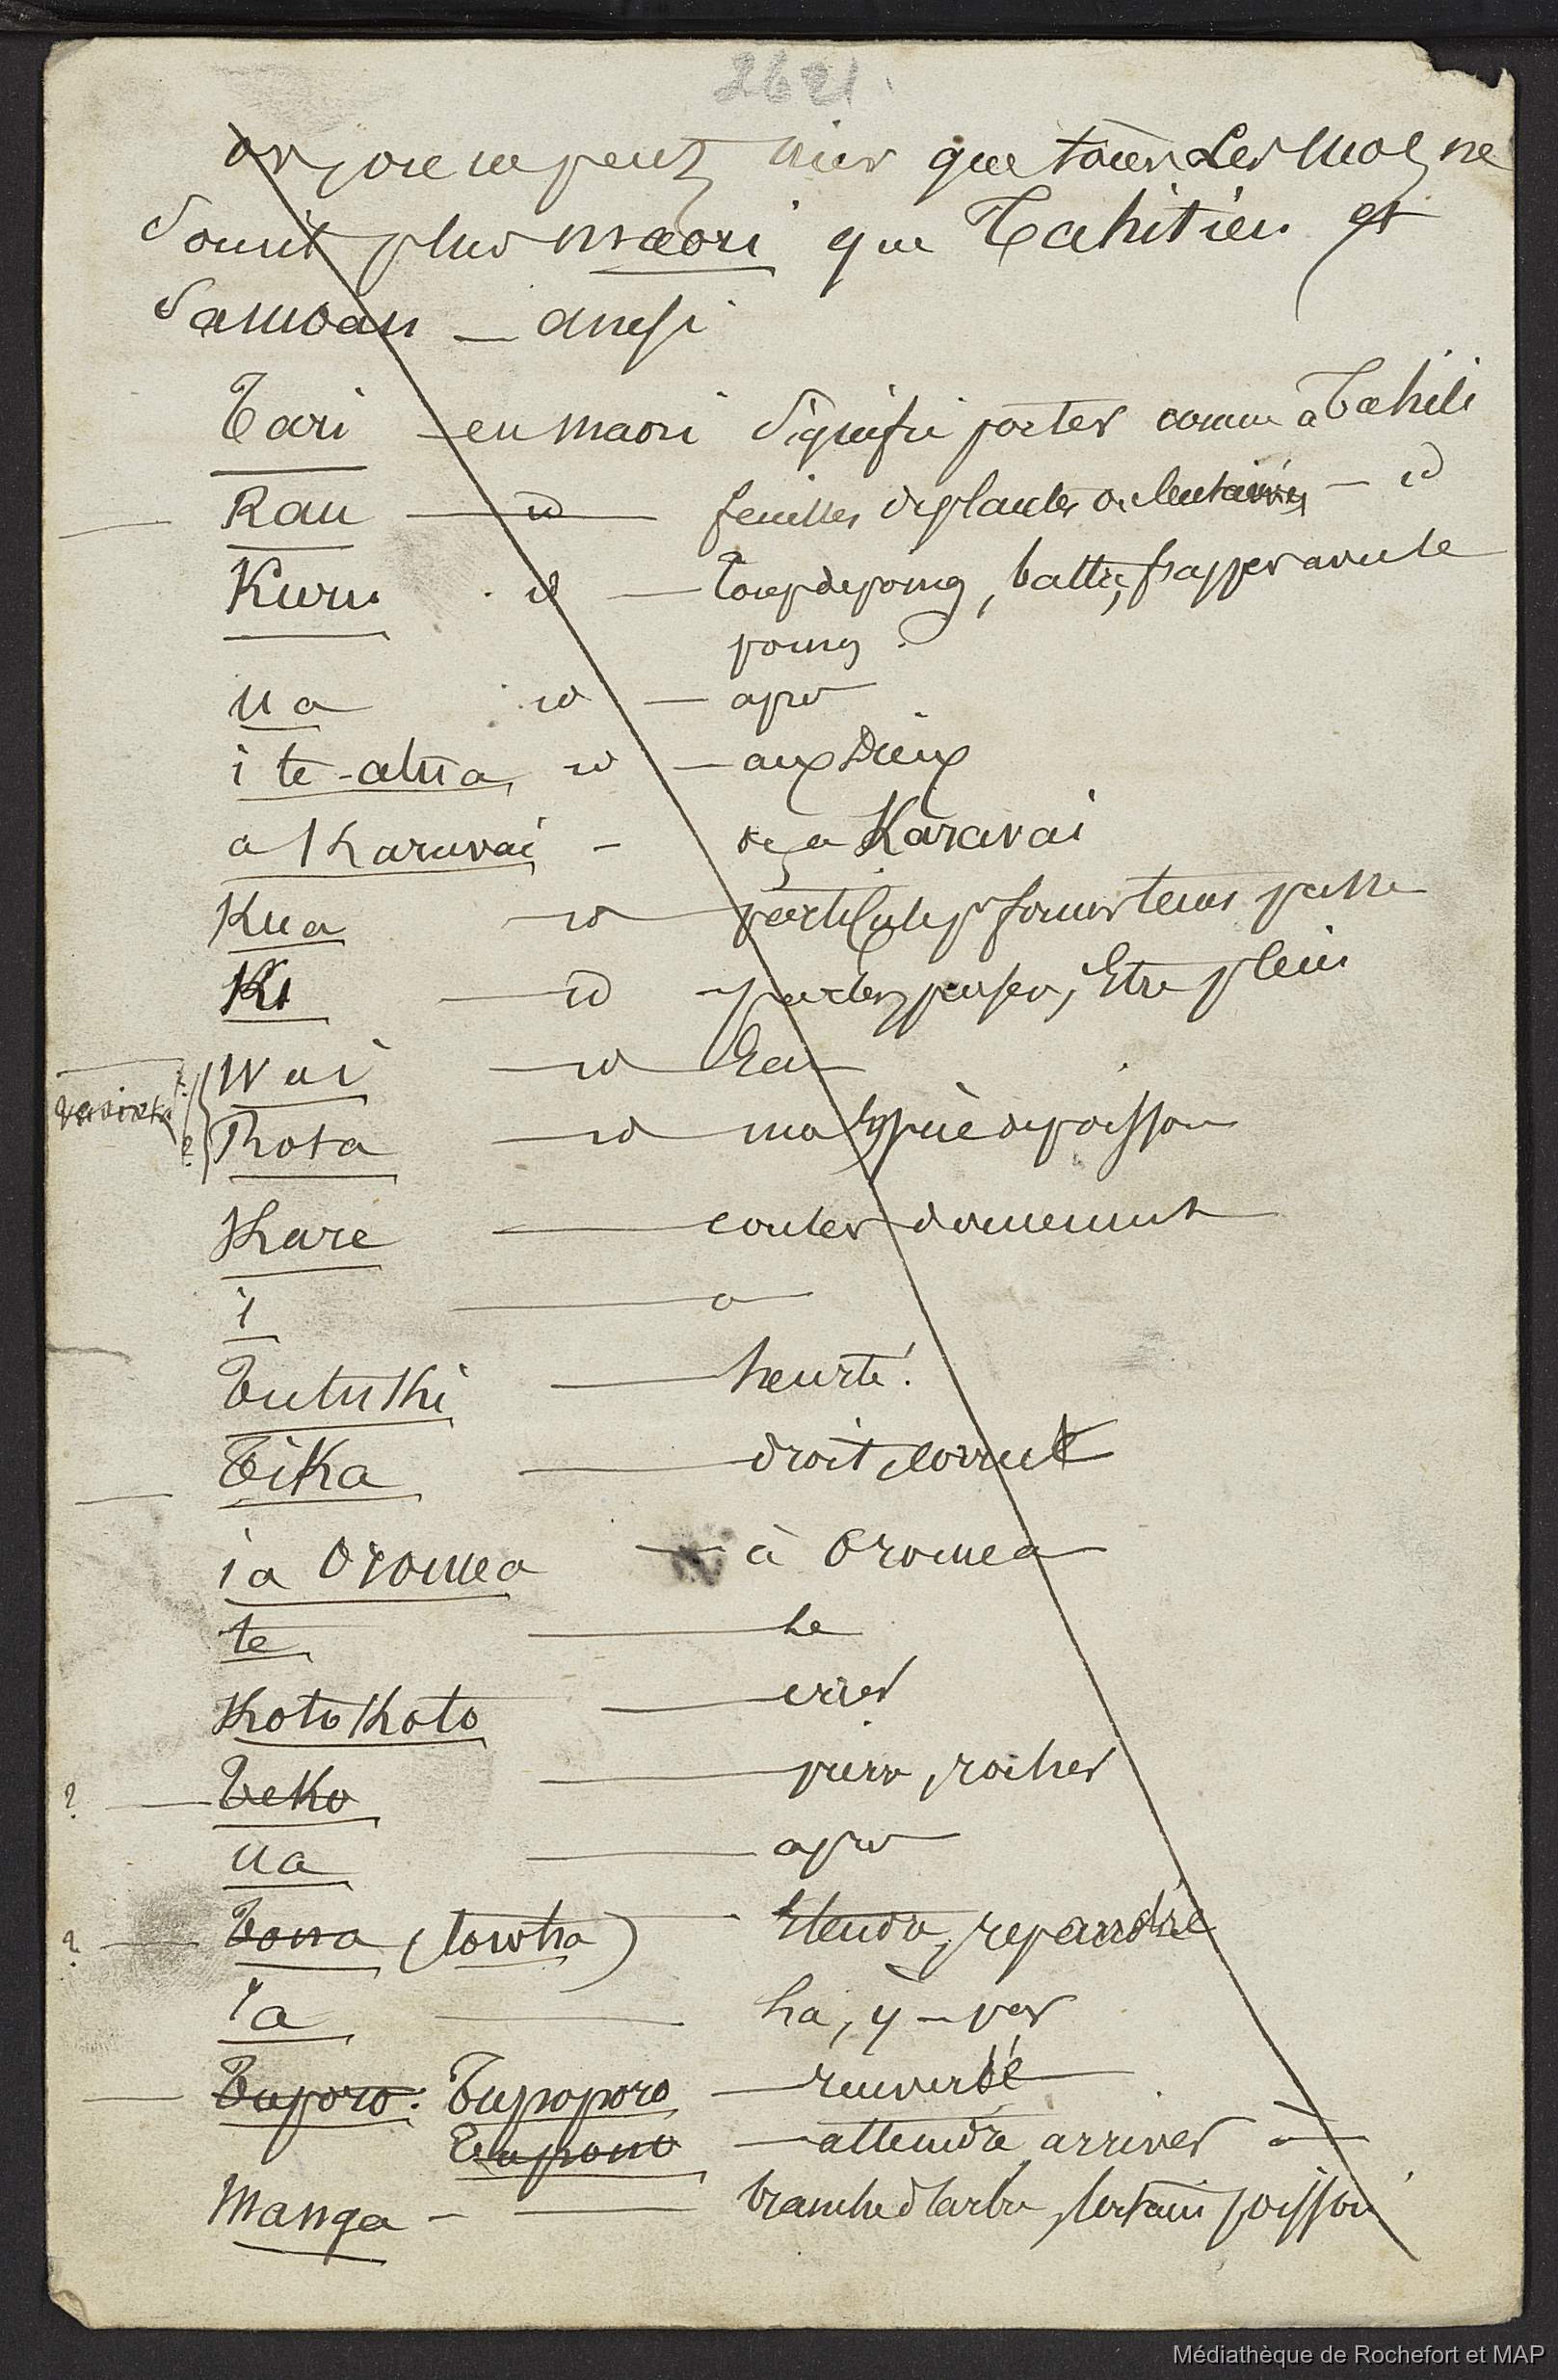 2621
or, on ne peut nier que tous Les mots ne
Sont plus maori que Tahitien et
Samoan _ ainsi
Tari _ en maori Signifie porter comme a Tahiti
Rau _ id _ feuilles de plantes ou _ id
Kuru id _ Coup de poing, battre, frapper avec le
poing.
Ua id _ apr
i te-atua id _ aux Dieux
a Karavai - de Karavai
Kua _ id particule pr former tems passé
Ki _ id _ parler, penser, Etre plein
Wai _ id Eau
Rota _ id espèce de poisson
Kare _ couler doucement
i _ a
Tutuki _ heurté.
Tika _ droit, correct
ia Oromea _ à Oromea
te _ le
Koto Koto _ crier
? _ Teko _ pierre, rocher
ua _ apr
? _ Toua (towha) _ Etendre, repandre
ia _ là, y - par
_ Tuporo. Tupoporo _ renversé
Tupono _ atteindre, arriver à _
Manga - _ branche d'arbre, certain poisson
Médiathèque de Rochefort et MAP